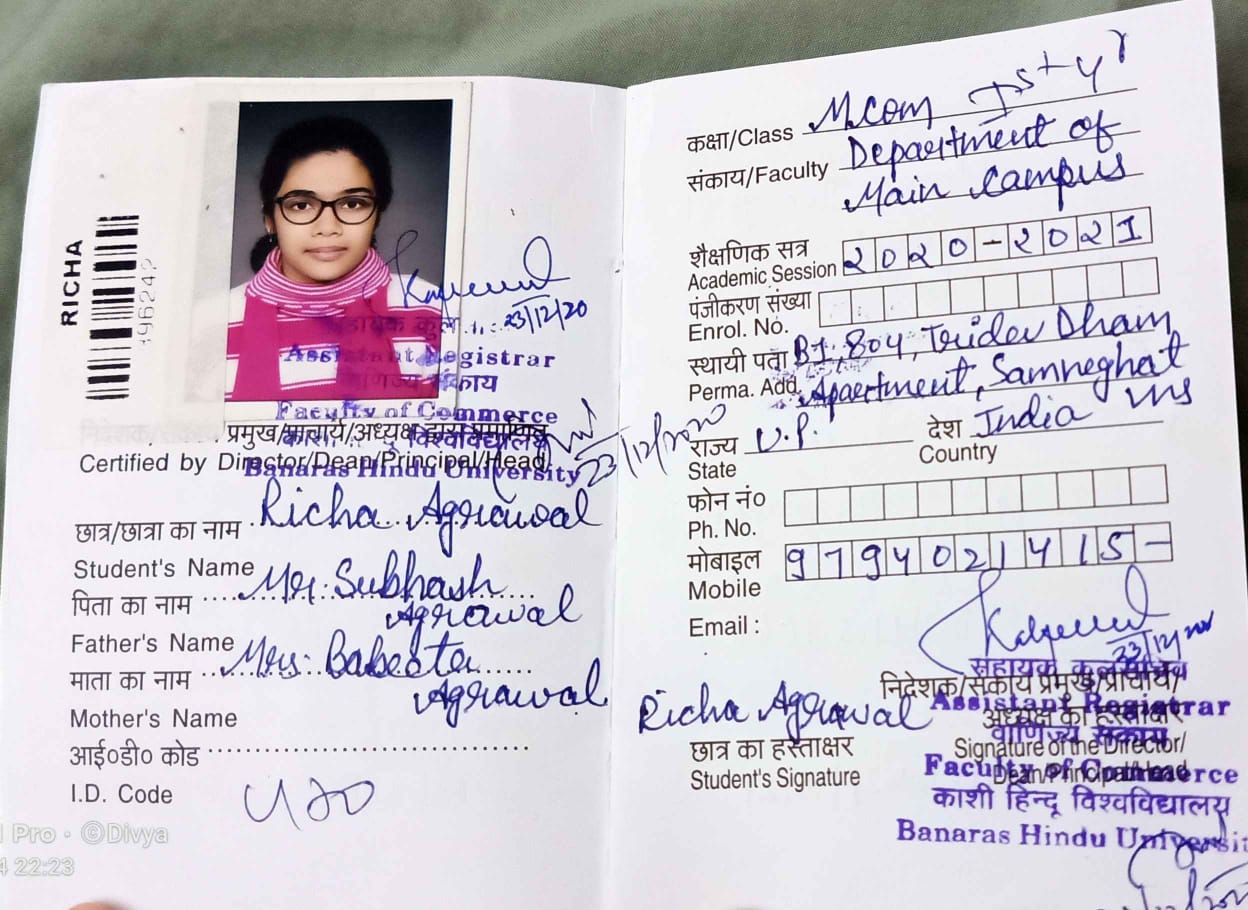 RICHA
396242
23/12/20
सहायक कुल
Assistant Registrar
वाणिज्य संकाय
Faculty of Commerce
प्रमुख/प्राचार्य/अध्यक्ष द्वारा प्रमाणित
काशी विश्वविद्यालय
Certified by Director/Dean/Principal/Head
Banaras Hindu University
23/12/2020
छात्र/छात्रा का नाम Richa Agrawal
Student's Name
पिता का नाम Mr. Subhash Agrawal
Father's Name
माता का नाम Mrs. Babeeta Agrawal
Mother's Name
आई०डी० कोड
I.D. Code
Pro · ©Divya
22:23
कक्षा/Class M.com Ist yr
संकाय/Faculty Department of
Main Campus
शैक्षणिक सत्र
Academic Session 2020-2021
पंजीकरण संख्या
Enrol. No.
स्थायी पता B1. 804, Tridev Dham
Perma. Add. Apartment, Samneghat
vns
राज्य U.P. देश India
State Country
फोन नं०
Ph. No.
मोबाइल 9794021415-
Mobile
Email :
23/12
सहायक कुलसचिव
निदेशक/संकाय प्रमुख/प्राचार्य/
Richa Agrawal Assistant Registrar
अध्यक्ष का हस्ताक्षर
वाणिज्य संकाय
छात्र का हस्ताक्षर Signature of the Director/
Student's Signature Dean/Principal/Head
Faculty of Commerce
काशी हिन्दू विश्वविद्यालय
Banaras Hindu Universit